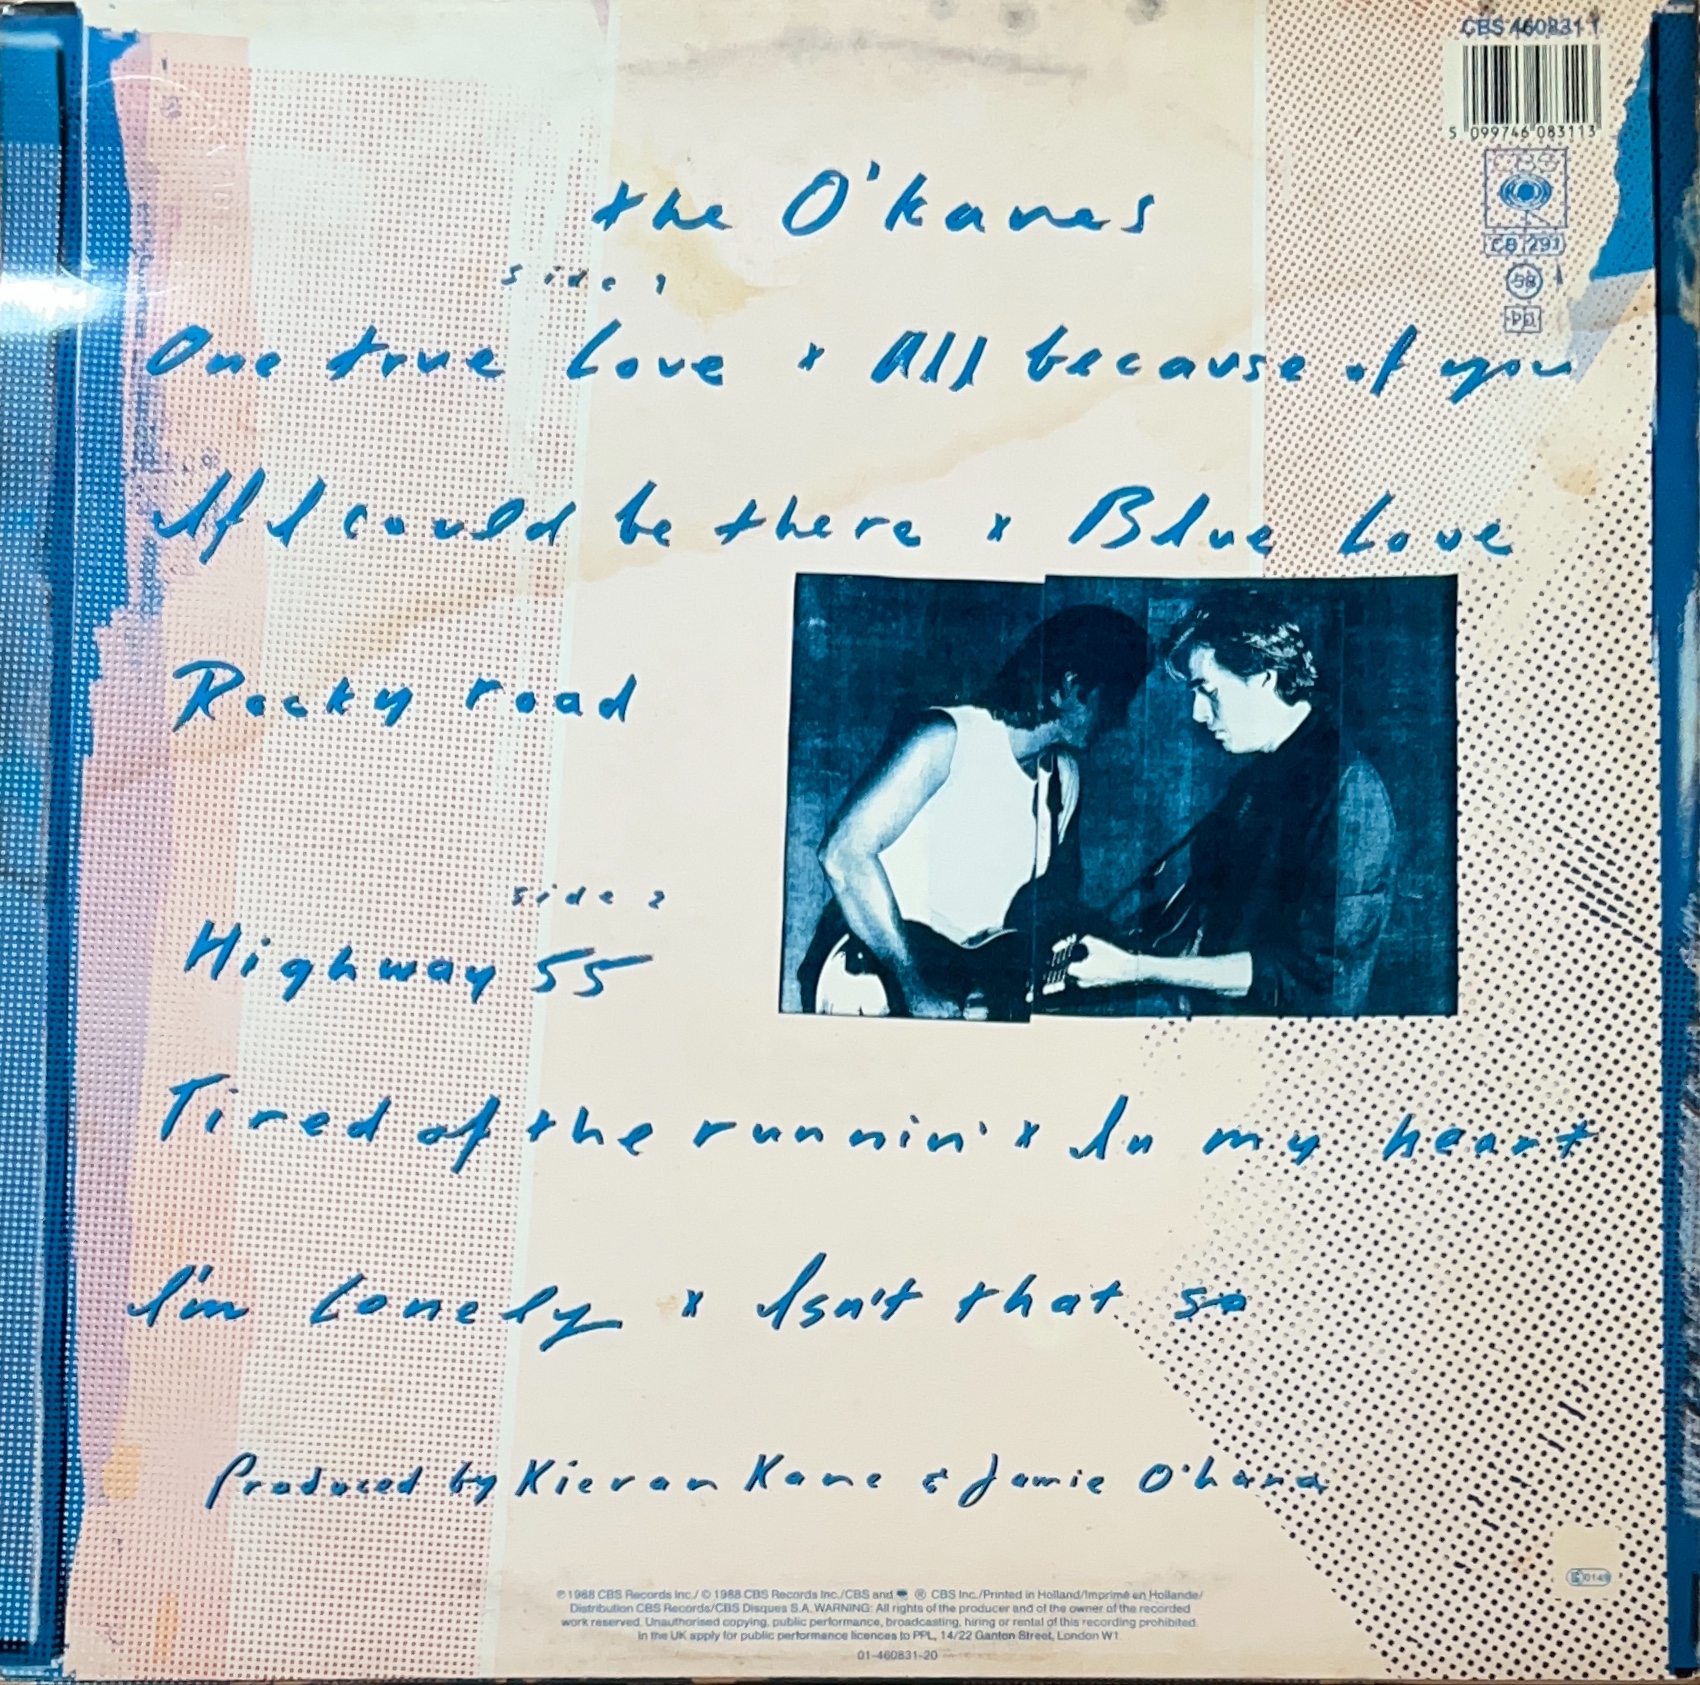 CBS 460831 1
5 099746 083113
CBS
CB 291
PD
the O'kanes
side 1
One true Love x All because of you
If I could be there x Blue Love
Rocky road
side 2
Highway 55
Tired of the runnin' x In my heart
I'm Lonely x Isn't that so
Produced by Kieran Kane & Jamie O'hara
℗ 1988 CBS Records Inc./ © 1988 CBS Records Inc./CBS and ® CBS Inc./Printed in Holland/Imprimé en Hollande/
Distribution CBS Records/CBS Disques S.A. WARNING: All rights of the producer and of the owner of the recorded
work reserved. Unauthorised copying, public performance, broadcasting, hiring or rental of this recording prohibited.
In the UK apply for public performance licences to PPL, 14/22 Ganton Street, London W1.
01-460831-20